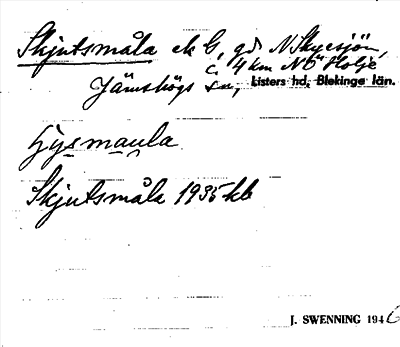 Skjutsmåla ek G, gd N Skyesjön,
c. 4 km NÖ Holje
Jämshögs sn, Listers hd, Blekinge län.
Skjutsmåla 1935 kb
J. SWENNING 1946